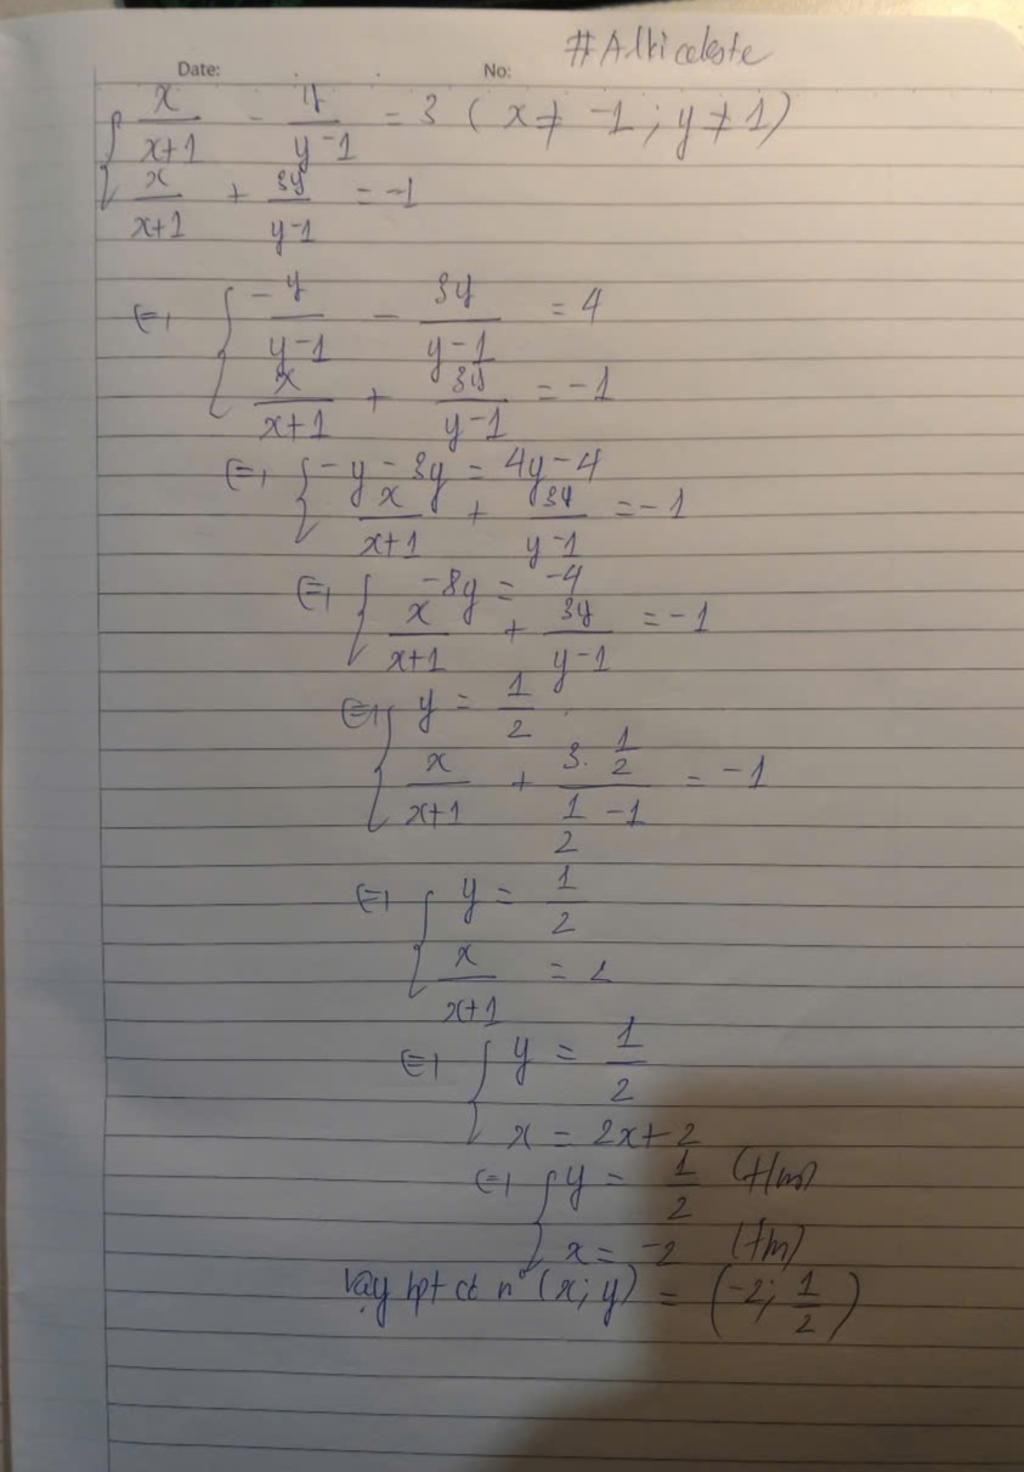 #Allticeleste
Date: No:
{ x/(x+1) - y/(y-1) = 3 ( x ≠ -1 ; y ≠ 1)
x/(x+1) + 3y/(y-1) = -1
⇔ { -y/(y-1) - 3y/(y-1) = 4
x/(x+1) + 3y/(y-1) = -1
⇔ { -y - 3y = 4y - 4
x/(x+1) + 3y/(y-1) = -1
⇔ { -8y = -4
x/(x+1) + 3y/(y-1) = -1
⇔ { y = 1/2
x/(x+1) + (3. 1/2)/(1/2 - 1) = -1
⇔ { y = 1/2
x/(x+1) = 2
⇔ { y = 1/2
x = 2x + 2
⇔ { y = 1/2 (t/m)
x = -2 (tm)
Vậy hpt có n° (x; y) = (-2; 1/2)